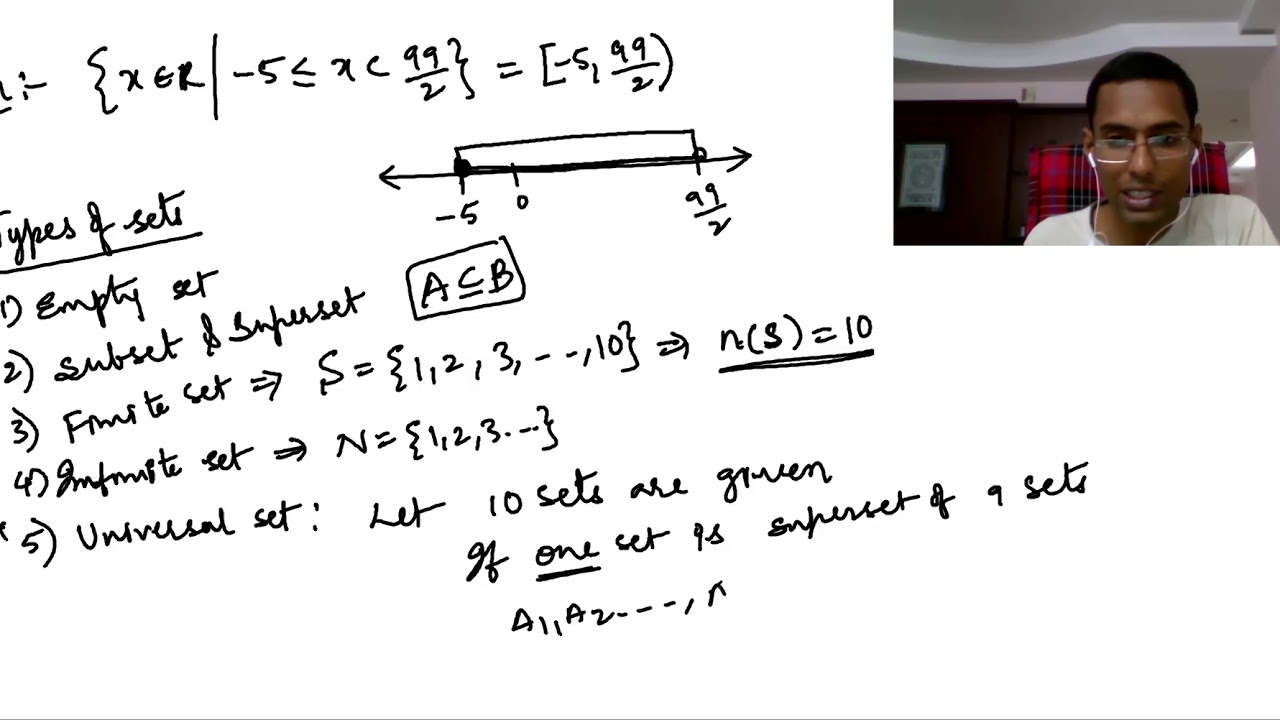 :- {x ∈ R | -5 ≤ x < 99/2} = [-5, 99/2)
-5 0 99/2
Types of sets
1) Empty set
2) Subset & Superset A ⊆ B
3) Finite set ⇒ S = {1, 2, 3, - - -, 10} ⇒ n(S) = 10
4) Infinite set ⇒ N = {1, 2, 3. - -}
5) Universal set : Let 10 sets are given
If one set is superset of 9 sets
A1, A2 - - - -,